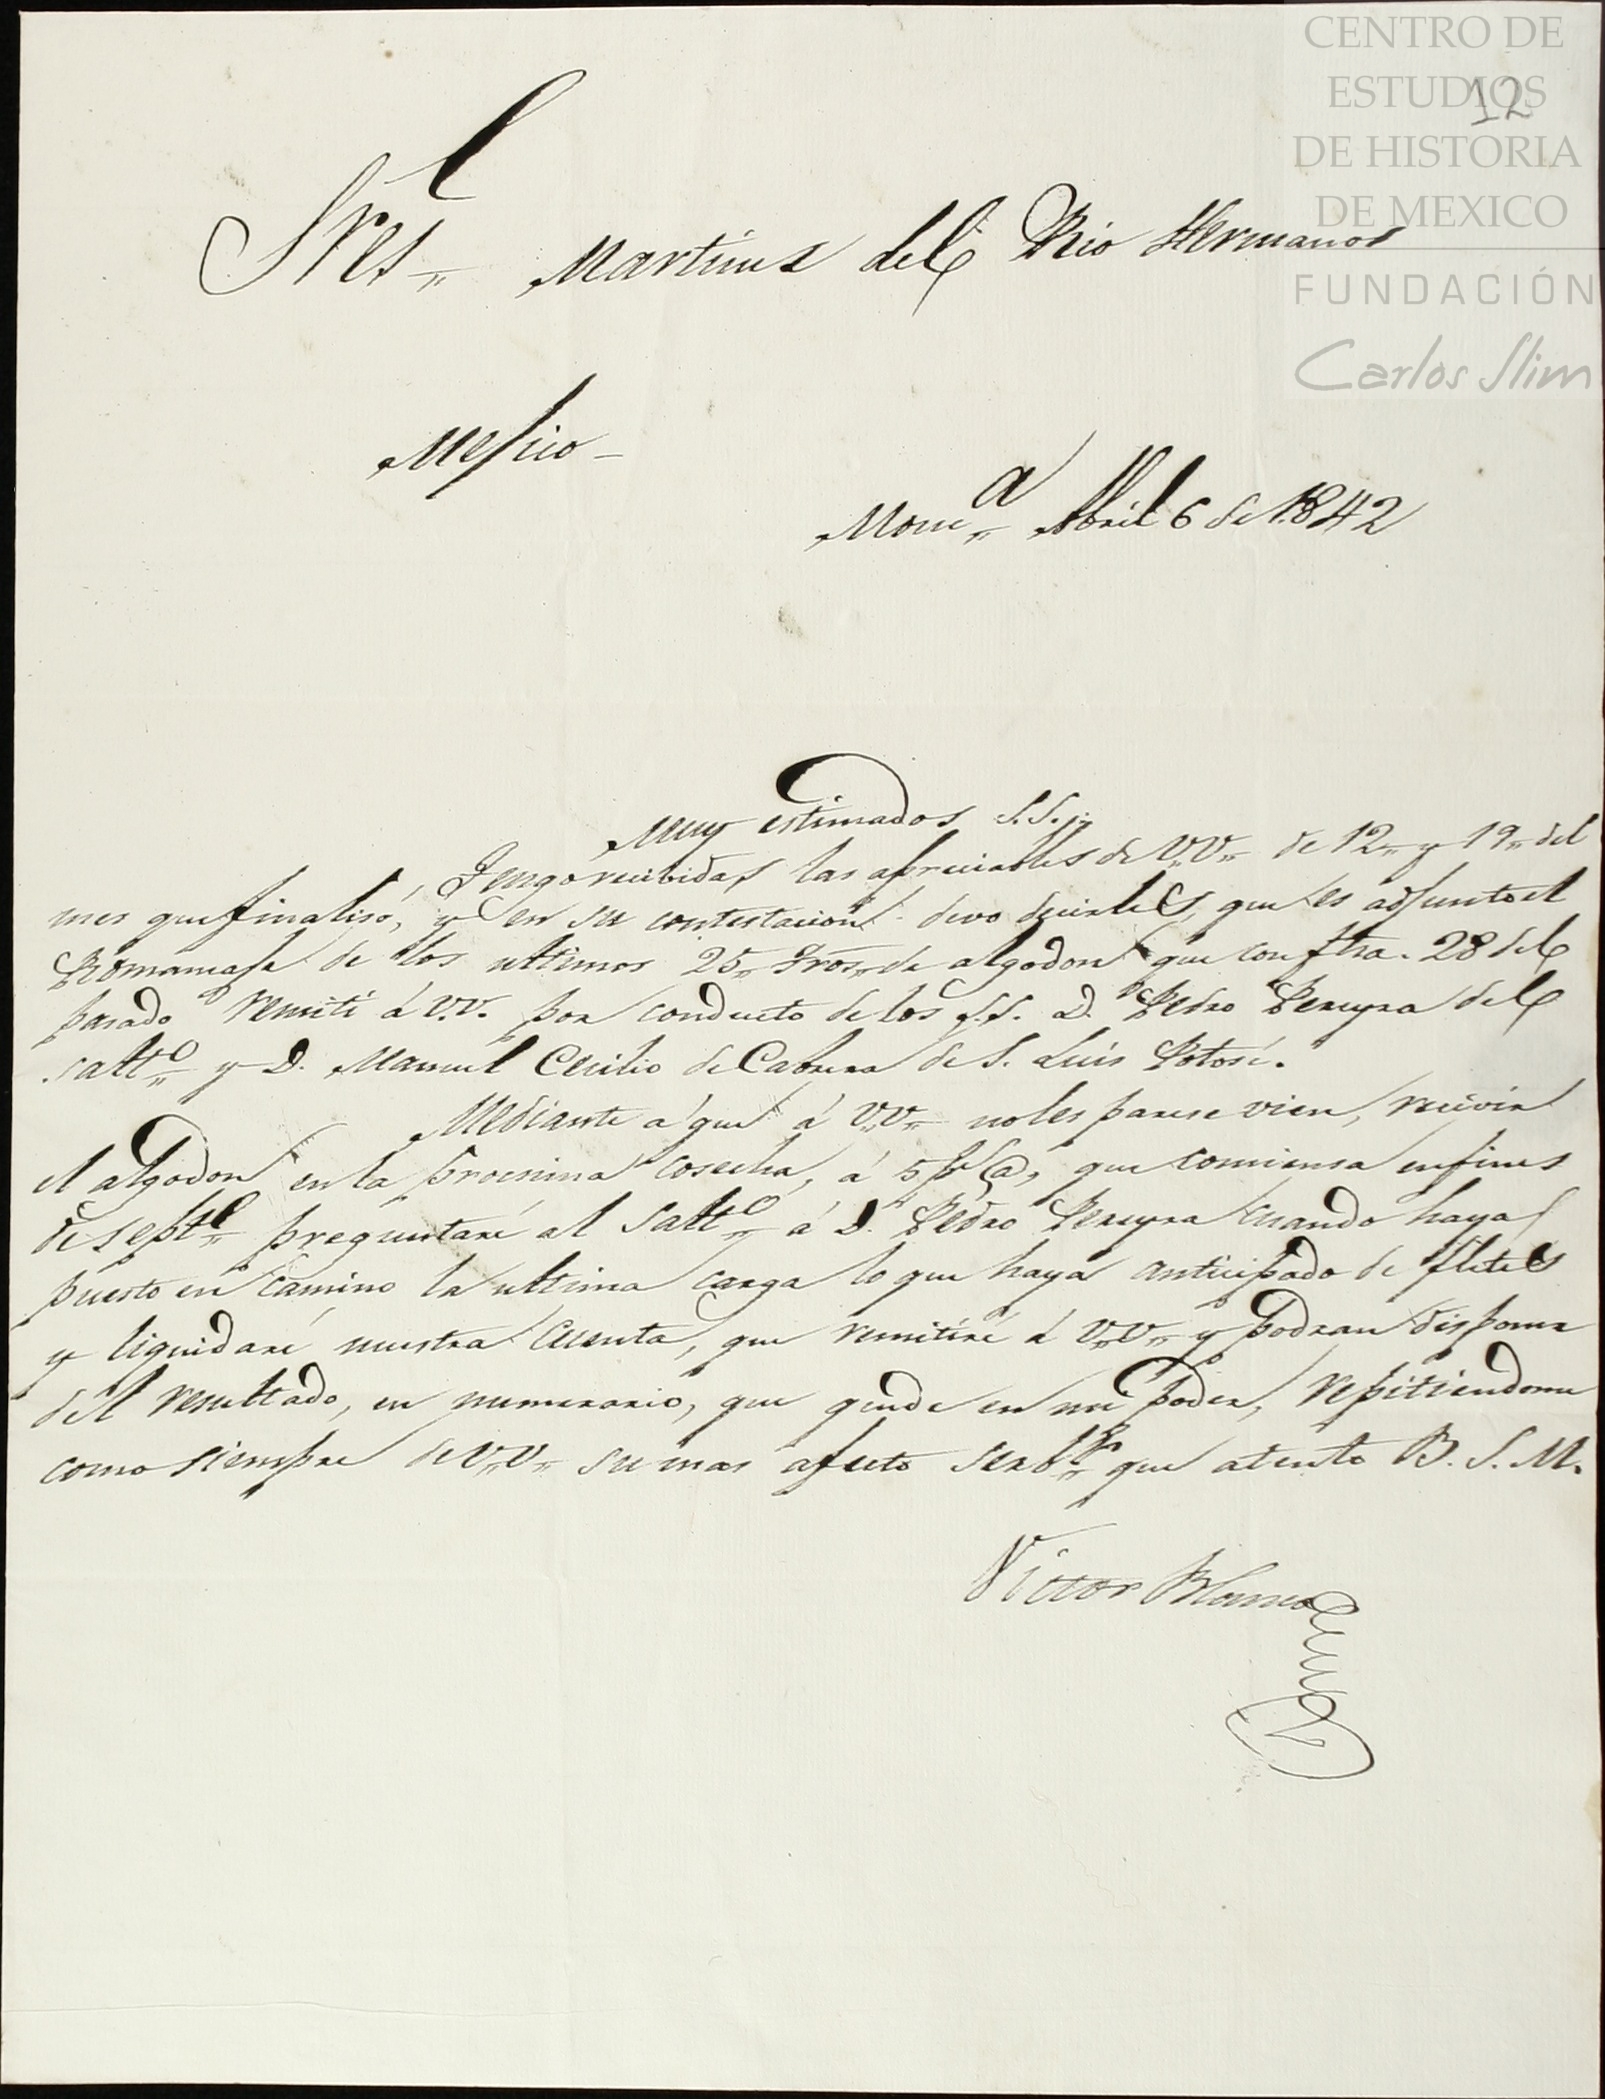 CENTRO DE
ESTUDIOS
DE HISTORIA
DE MEXICO
FUNDACIÓN
Carlos Slim
12
Sres,, Martines del Rio Hermanos
Mejico -
Monca,, Abril 6 de 1842
Muy estimados S.S.,,
Tengo recibidas las apreciables de V.V,, de 12,, y 19,, del
mes que finalisó, y en su contestacion devo decirles, que es adjunto el
Romaneaje de los ultimos 25,, Tros,, de algodon que con fha. 28 del
pasado remiti á V.V. por conducto de los S.S. D. Pedro Pereyra del
Saltto,, y D. Manuel Cecilio de Cabrera de S. Luis Potosi.
Mediante a que á V.V,, no les parese vien, recivir
el algodon en la procsima cosecha, á 5 p @, que comiensa en fines
de septe,, preguntaré al Saltto,, á D. Pedro Pereyra cuando haya
puesto en camino la ultima carga lo que haya anticipado de fletes
y liquidaré nuestra Cuenta, que remitiré á V.V,, y podran disponer
del resultado, en numerario, que quede en mi poder, repitiendome
como siempre de V.V,, su mas afecto serbor,, que atento B. S. M.
Victor Blanco